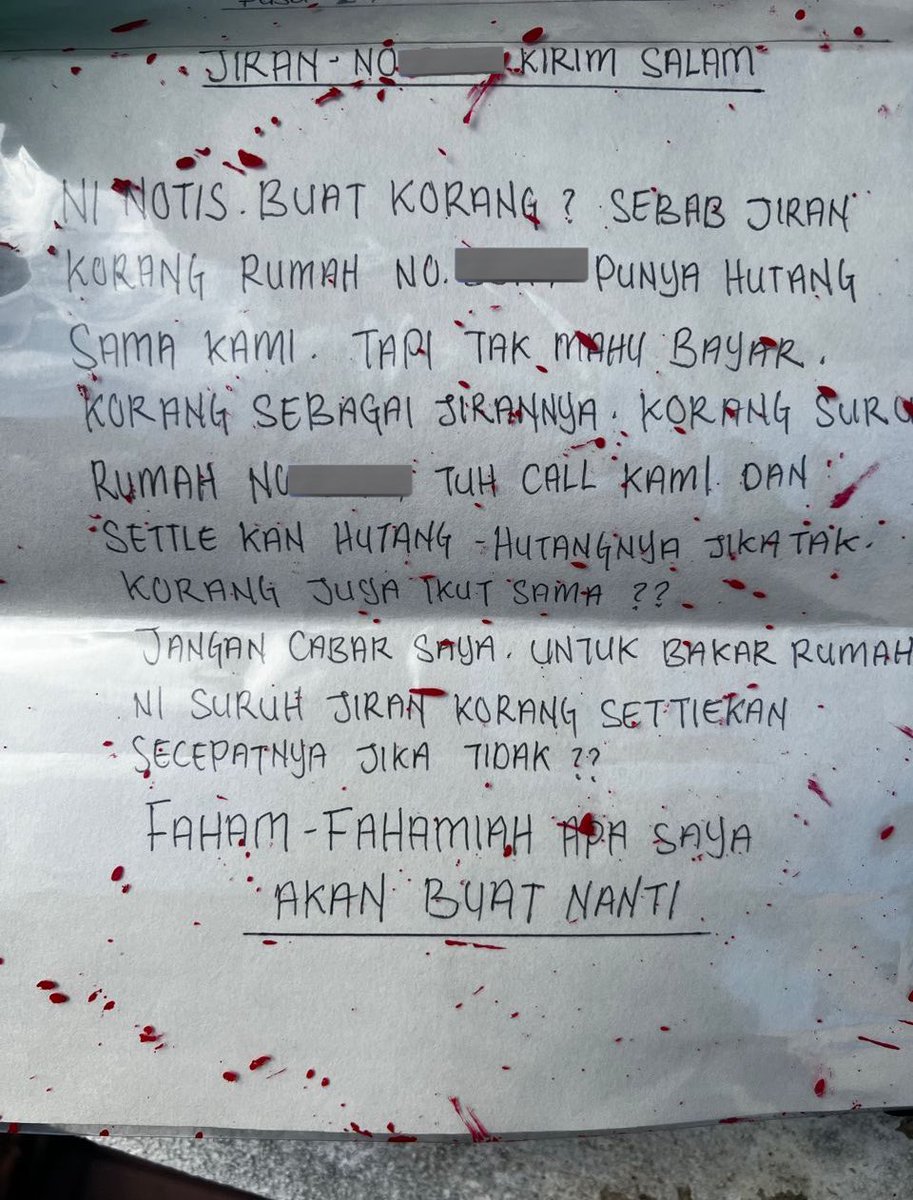 JIRAN - NO KIRIM SALAM
NI NOTIS. BUAT KORANG ? SEBAB JIRAN
KORANG RUMAH NO. PUNYA HUTANG
SAMA KAMI. TAPI TAK MAHU BAYAR.
KORANG SEBAGAI JIRANNYA. KORANG SURU
RUMAH NO TUH CALL KAMI DAN
SETTLE KAN HUTANG - HUTANGNYA JIKA TAK.
KORANG JUGA IKUT SAMA ??
JANGAN CABAR SAYA. UNTUK BAKAR RUMAH
NI SURUH JIRAN KORANG SETTIEKAN
SECEPATNYA JIKA TIDAK ??
FAHAM - FAHAMIAH APA SAYA
AKAN BUAT NANTI